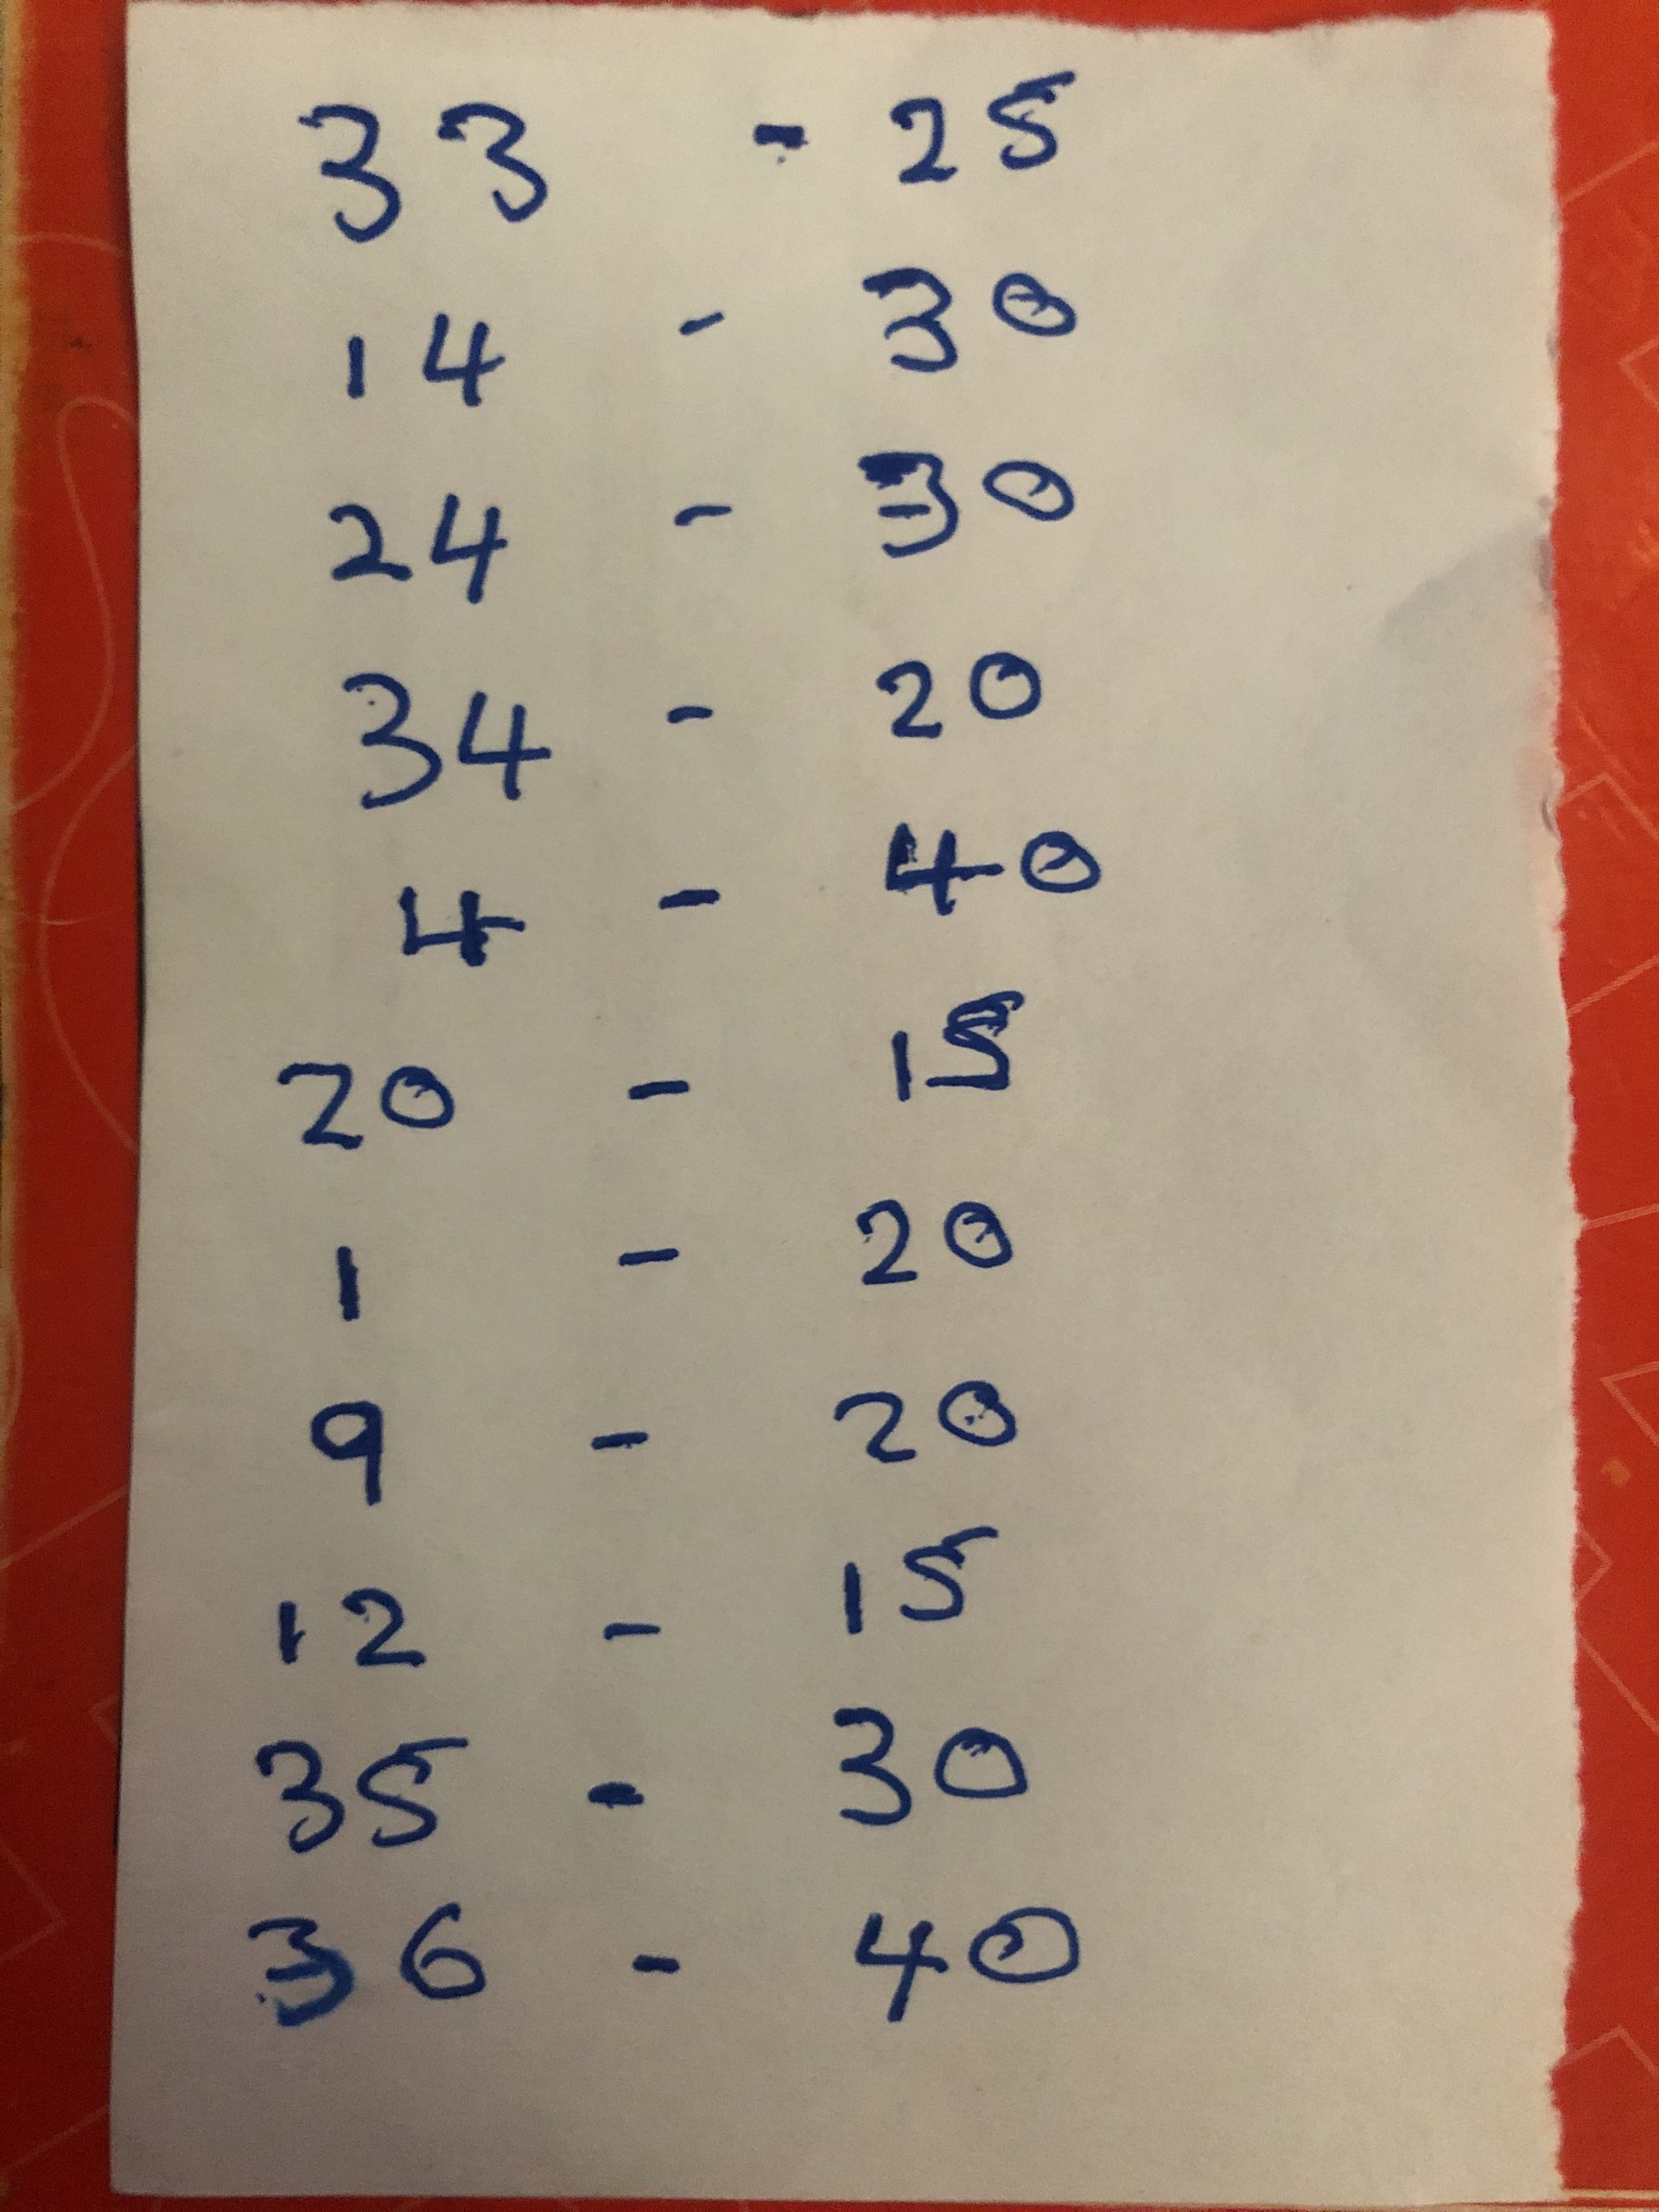 33 - 25
14 - 30
24 - 30
34 - 20
4 - 40
20 - 15
1 - 20
9 - 20
12 - 15
35 - 30
36 - 40